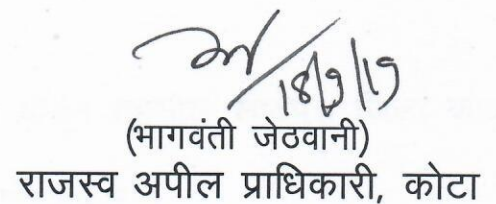 18/9/19
(भागवंती जेठवानी)
राजस्व अपील प्राधिकारी, कोटा